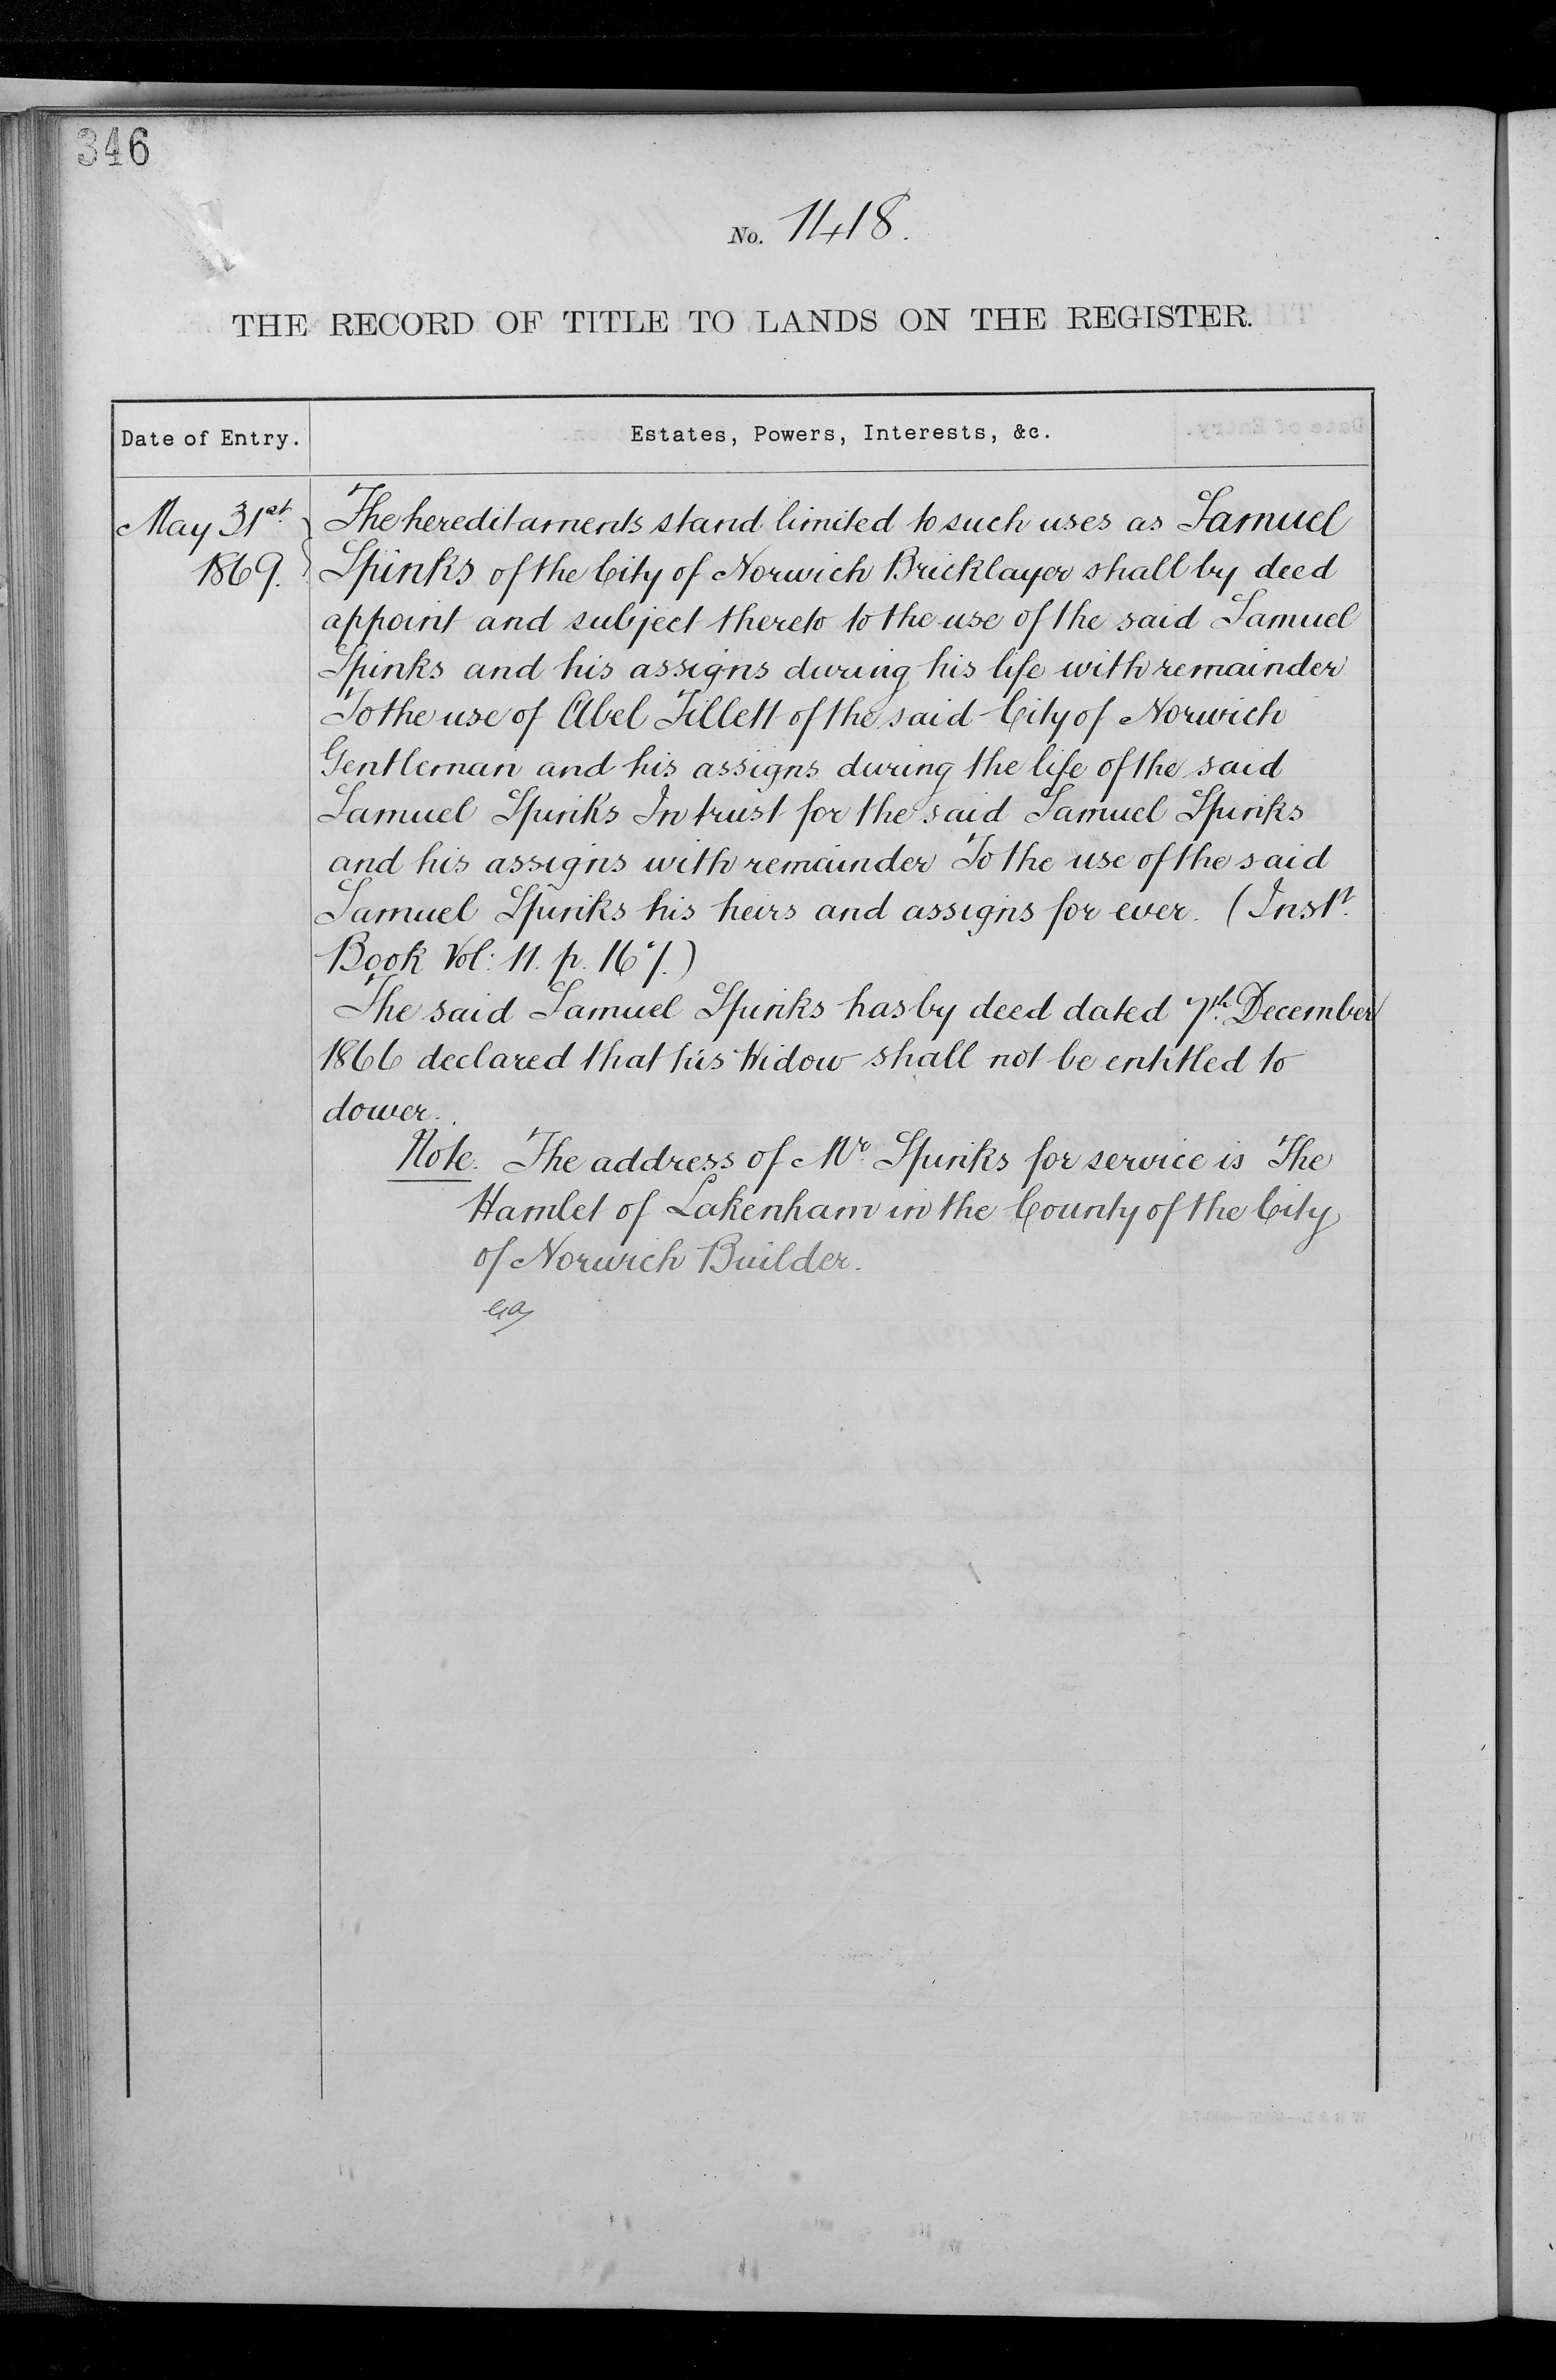 346
No. 1418.
THE RECORD OF TITLE TO LANDS ON THE REGISTER.
Date of Entry.
Estates, Powers, Interests, &c.
May 31st
1869.
The hereditaments stand limited to such uses as Samuel
Spinks of the City of Norwich Bricklayer shall by deed
appoint and subject thereto to the use of the said Samuel
Spinks and his assigns during his life with remainder
To the use of Abel Tillett of the said City of Norwich
Gentleman and his assigns during the life of the said
Samuel Spinks In trust for the said Samuel Spinks
and his assigns with remainder To the use of the said
Samuel Spinks his heirs and assigns for ever. (Inst.
Book Vol: 11. p. 167.)
The said Samuel Spinks has by deed dated 7th. December
1866 declared that his Widow shall not be entitled to
dower.
Note. The address of Mr Spinks for service is The
Hamlet of Lakenham in the County of the City
of Norwich Builder.